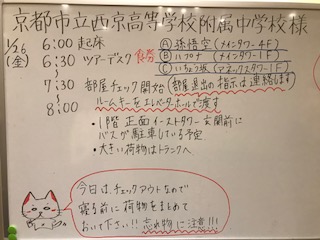 京都市立西京高等学校附属中学校様
1/26(金)
6:00 起床
6:30 ツアーデスク 食券
Ⓐ 孫悟空 (メインタワー4F)
Ⓑ ハプナ (メインタワー1F)
Ⓒ いちょう坂 (アネックスタワー1F)
7:30 部屋チェック開始 (部屋退出の指示は連絡します)
〜
8:00 ルームキーをエレベーターホールで渡す
・1階 正面 イーストタワー玄関前に
バスが駐車している予定
・大きい荷物はトランクへ
今日は、チェックアウトなので
寝る前に荷物をまとめて
おいて下さい!! 忘れ物に注意!!!